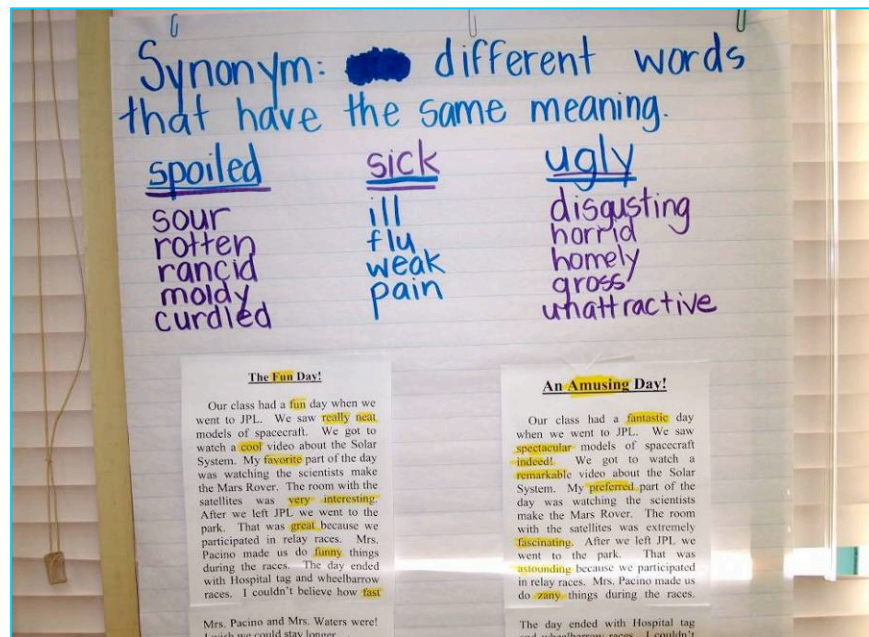 Synonym: different words
that have the same meaning.
spoiled
sour
rotten
rancid
moldy
curdled
sick
ill
flu
weak
pain
ugly
disgusting
horrid
homely
gross
unattractive
The Fun Day!
Our class had a fun day when we
went to JPL. We saw really neat
models of spacecraft. We got to
watch a cool video about the Solar
System. My favorite part of the day
was watching the scientists make
the Mars Rover. The room with the
satellites was very interesting.
After we left JPL we went to the
park. That was great because we
participated in relay races. Mrs.
Pacino made us do funny things
during the races. The day ended
with Hospital tag and wheelbarrow
races. I couldn't believe how fast
Mrs. Pacino and Mrs. Waters were!
I wish we could stay longer
An Amusing Day!
Our class had a fantastic day
when we went to JPL. We saw
spectacular models of spacecraft
indeed! We got to watch a
remarkable video about the Solar
System. My preferred part of the
day was watching the scientists
make the Mars Rover. The room
with the satellites was extremely
fascinating. After we left JPL we
went to the park. That was
astounding because we participated
in relay races. Mrs. Pacino made us
do zany things during the races.
The day ended with Hospital tag
and wheelbarrow races. I couldn't